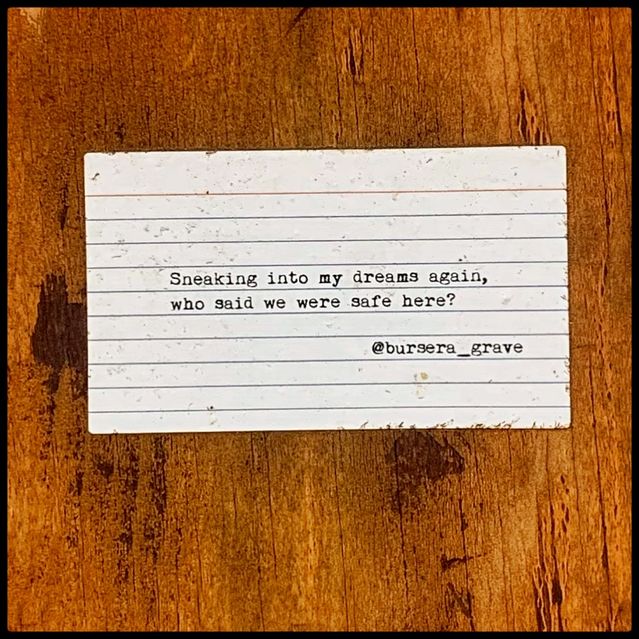 Sneaking into my dreams again,
who said we were safe here?
@bursera_grave